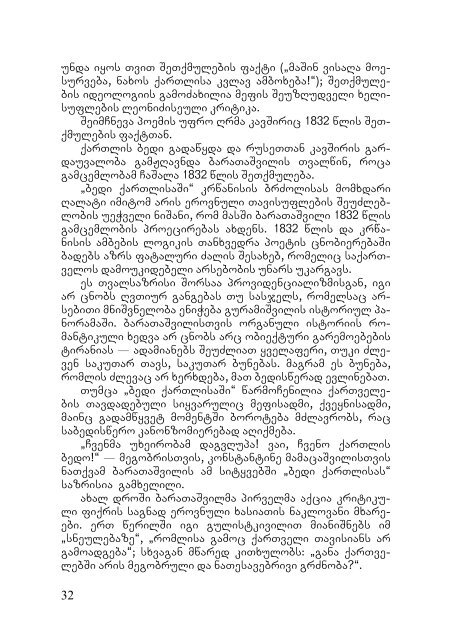 უნდა იყოს თვით შეთქმულების ფაქტი („მაშინ ვისაღა მოე-
სურვება, ნახოს ქართლისა კვლავ ამბოხება!“); შეთქმულე-
ბის იდეოლოგიის გამოძახილია მეფის შეუზღუდველი ხელი-
სუფლების ლეონიძისეული კრიტიკა.
შეიმჩნევა პოემის უფრო ღრმა კავშირიც 1832 წლის შეთ-
ქმულების ფაქტთან.
ქართლის ბედი გადაწყდა და რუსეთთან კავშირის გარ-
დაუვალობა გამჟღავნდა ბარათაშვილის თვალწინ, როცა
გამცემლობამ ჩაშალა 1832 წლის შეთქმულება.
„ბედი ქართლისაში“ კრწანისის ბრძოლისას მომხდარი
ღალატი იმიტომ არის ეროვნული თავისუფლების შეუძლებ-
ლობის უეჭველი ნიშანი, რომ მასში ბარათაშვილი 1832 წლის
გამცემლობის პროეცირებას ახდენს. 1832 წლის და კრწა-
ნისის ამბების ლოგიკის თანხვედრა პოეტის ცნობიერებაში
ბადებს აზრს ფატალური ძალის შესახებ, რომელიც საქართ-
ველოს დამოუკიდებელი არსებობის უნარს უკარგავს.
ეს თვალსაზრისი შორსაა პროვიდენციალიზმისგან, იგი
არ ცნობს ღვთიურ განგებას თუ სასჯელს, რომელსაც არ-
სებითი მნიშვნელობა ენიჭება გურამიშვილის ისტორიულ პა-
ნორამაში. ბარათაშვილისთვის ორგანული ისტორიის რო-
მანტიკული ხედვა არ ცნობს არც ობიექტური გარემოებების
ტირანიას — ადამიანებს შეუძლიათ ყველაფერი, თუკი ძლე-
ვენ საკუთარ თავს, საკუთარ ბუნებას. მაგრამ ეს ბუნება,
რომლის ძლევაც არ ხერხდება, მათ ბედისწერად ევლინებათ.
თუმცა „ბედი ქართლისაში“ წარმოჩენილია ქართველე-
ბის თავდადებული სიყვარულიც მეფისადმი, ქვეყნისადმი,
მაინც გადამწყვეტ მომენტში ბოროტება მძლავრობს, რაც
საბედისწერო კანონზომიერებად აღიქმება.
„ჩვენმა უხეირობამ დაგვლუპა! ვაი, ჩვენო ქართლის
ბედო!“ — მეგობრისთვის, კონსტანტინე მამაცაშვილისთვის
ნათქვამ ბარათაშვილის ამ სიტყვებში „ბედი ქართლისას“
საზრისია გამხელილი.
ახალ დროში ბარათაშვილმა პირველმა აქცია კრიტიკუ-
ლი ფიქრის საგნად ეროვნული ხასიათის ნაკლოვანი მხარე-
ები. ერთ წერილში იგი გულისტკივილით მიანიშნებს იმ
„სნეულებაზე“, „რომლისა გამოც ქართველი თავისიანს არ
გამოადგება“; სხვაგან მწარედ კითხულობს: „განა ქართვე-
ლებში არის მეგობრული და ნათესავებრივი გრძნობა?“.
32